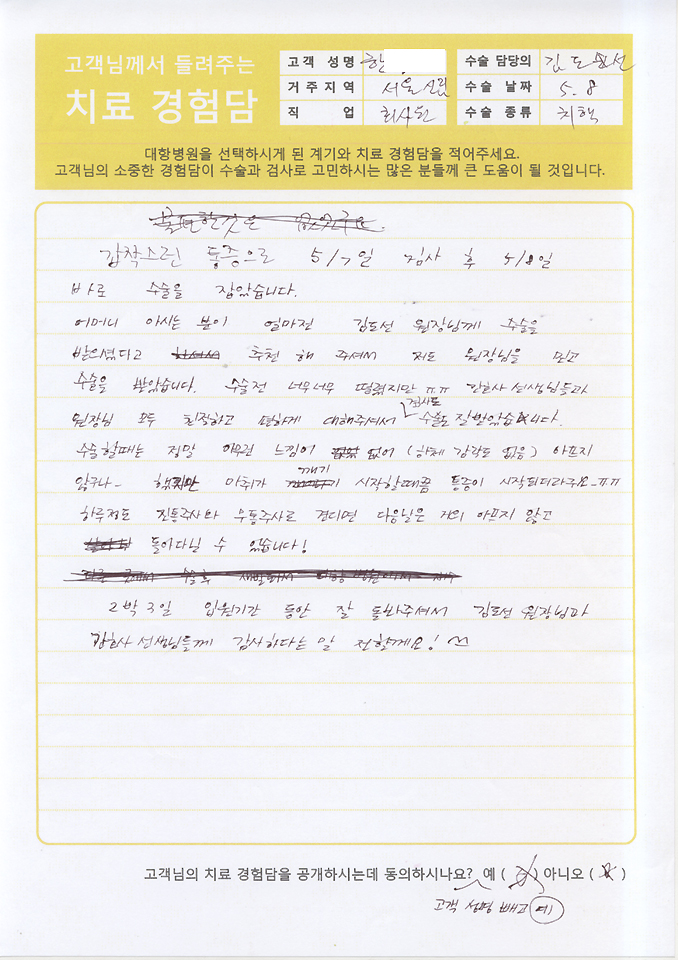 고객님께서 들려주는
치료 경험담
고객 성명 한
수술 담당의 김도선
거주지역 서울 신림
수술 날짜 5.8
직 업 회사원
수술 종류 치핵
대항병원을 선택하시게 된 계기와 치료 경험담을 적어주세요.
고객님의 소중한 경험담이 수술과 검사로 고민하시는 많은 분들께 큰 도움이 될 것입니다.
갑작스런 통증으로 5/7일 검사 후 5/8일
바로 수술을 잡았습니다.
어머니 아시는 분이 얼마전 김도선 원장님께 수술을
받으셨다고 추천 해 주셔서 저도 원장님을 믿고
수술을 받았습니다. 수술전 너무너무 떨렸지만 ㅠㅠ 간호사 선생님들과
원장님 모두 친절하고 편하게 대해주셔서 검사도 수술도 잘 받았습니다.
수술할때는 정말 아무런 느낌이 없어 (하체 감각도 없음) 아프지
않구나~ 했지만 마취가 깨기 시작할때쯤 통증이 시작되더라구요~ㅠㅠ
하루정도 진통주사와 무통주사로 견디면 다음날은 거의 아프지 않고
돌아다닐 수 있습니다!
2박 3일 입원기간 동안 잘 돌봐주셔서 김도선 원장님과
간호사 선생님들께 감사하다는 말 전할게요!
고객님의 치료 경험담을 공개하시는데 동의하시나요? 예 ( ) 아니오 ( )
고객 성명 빼고 예